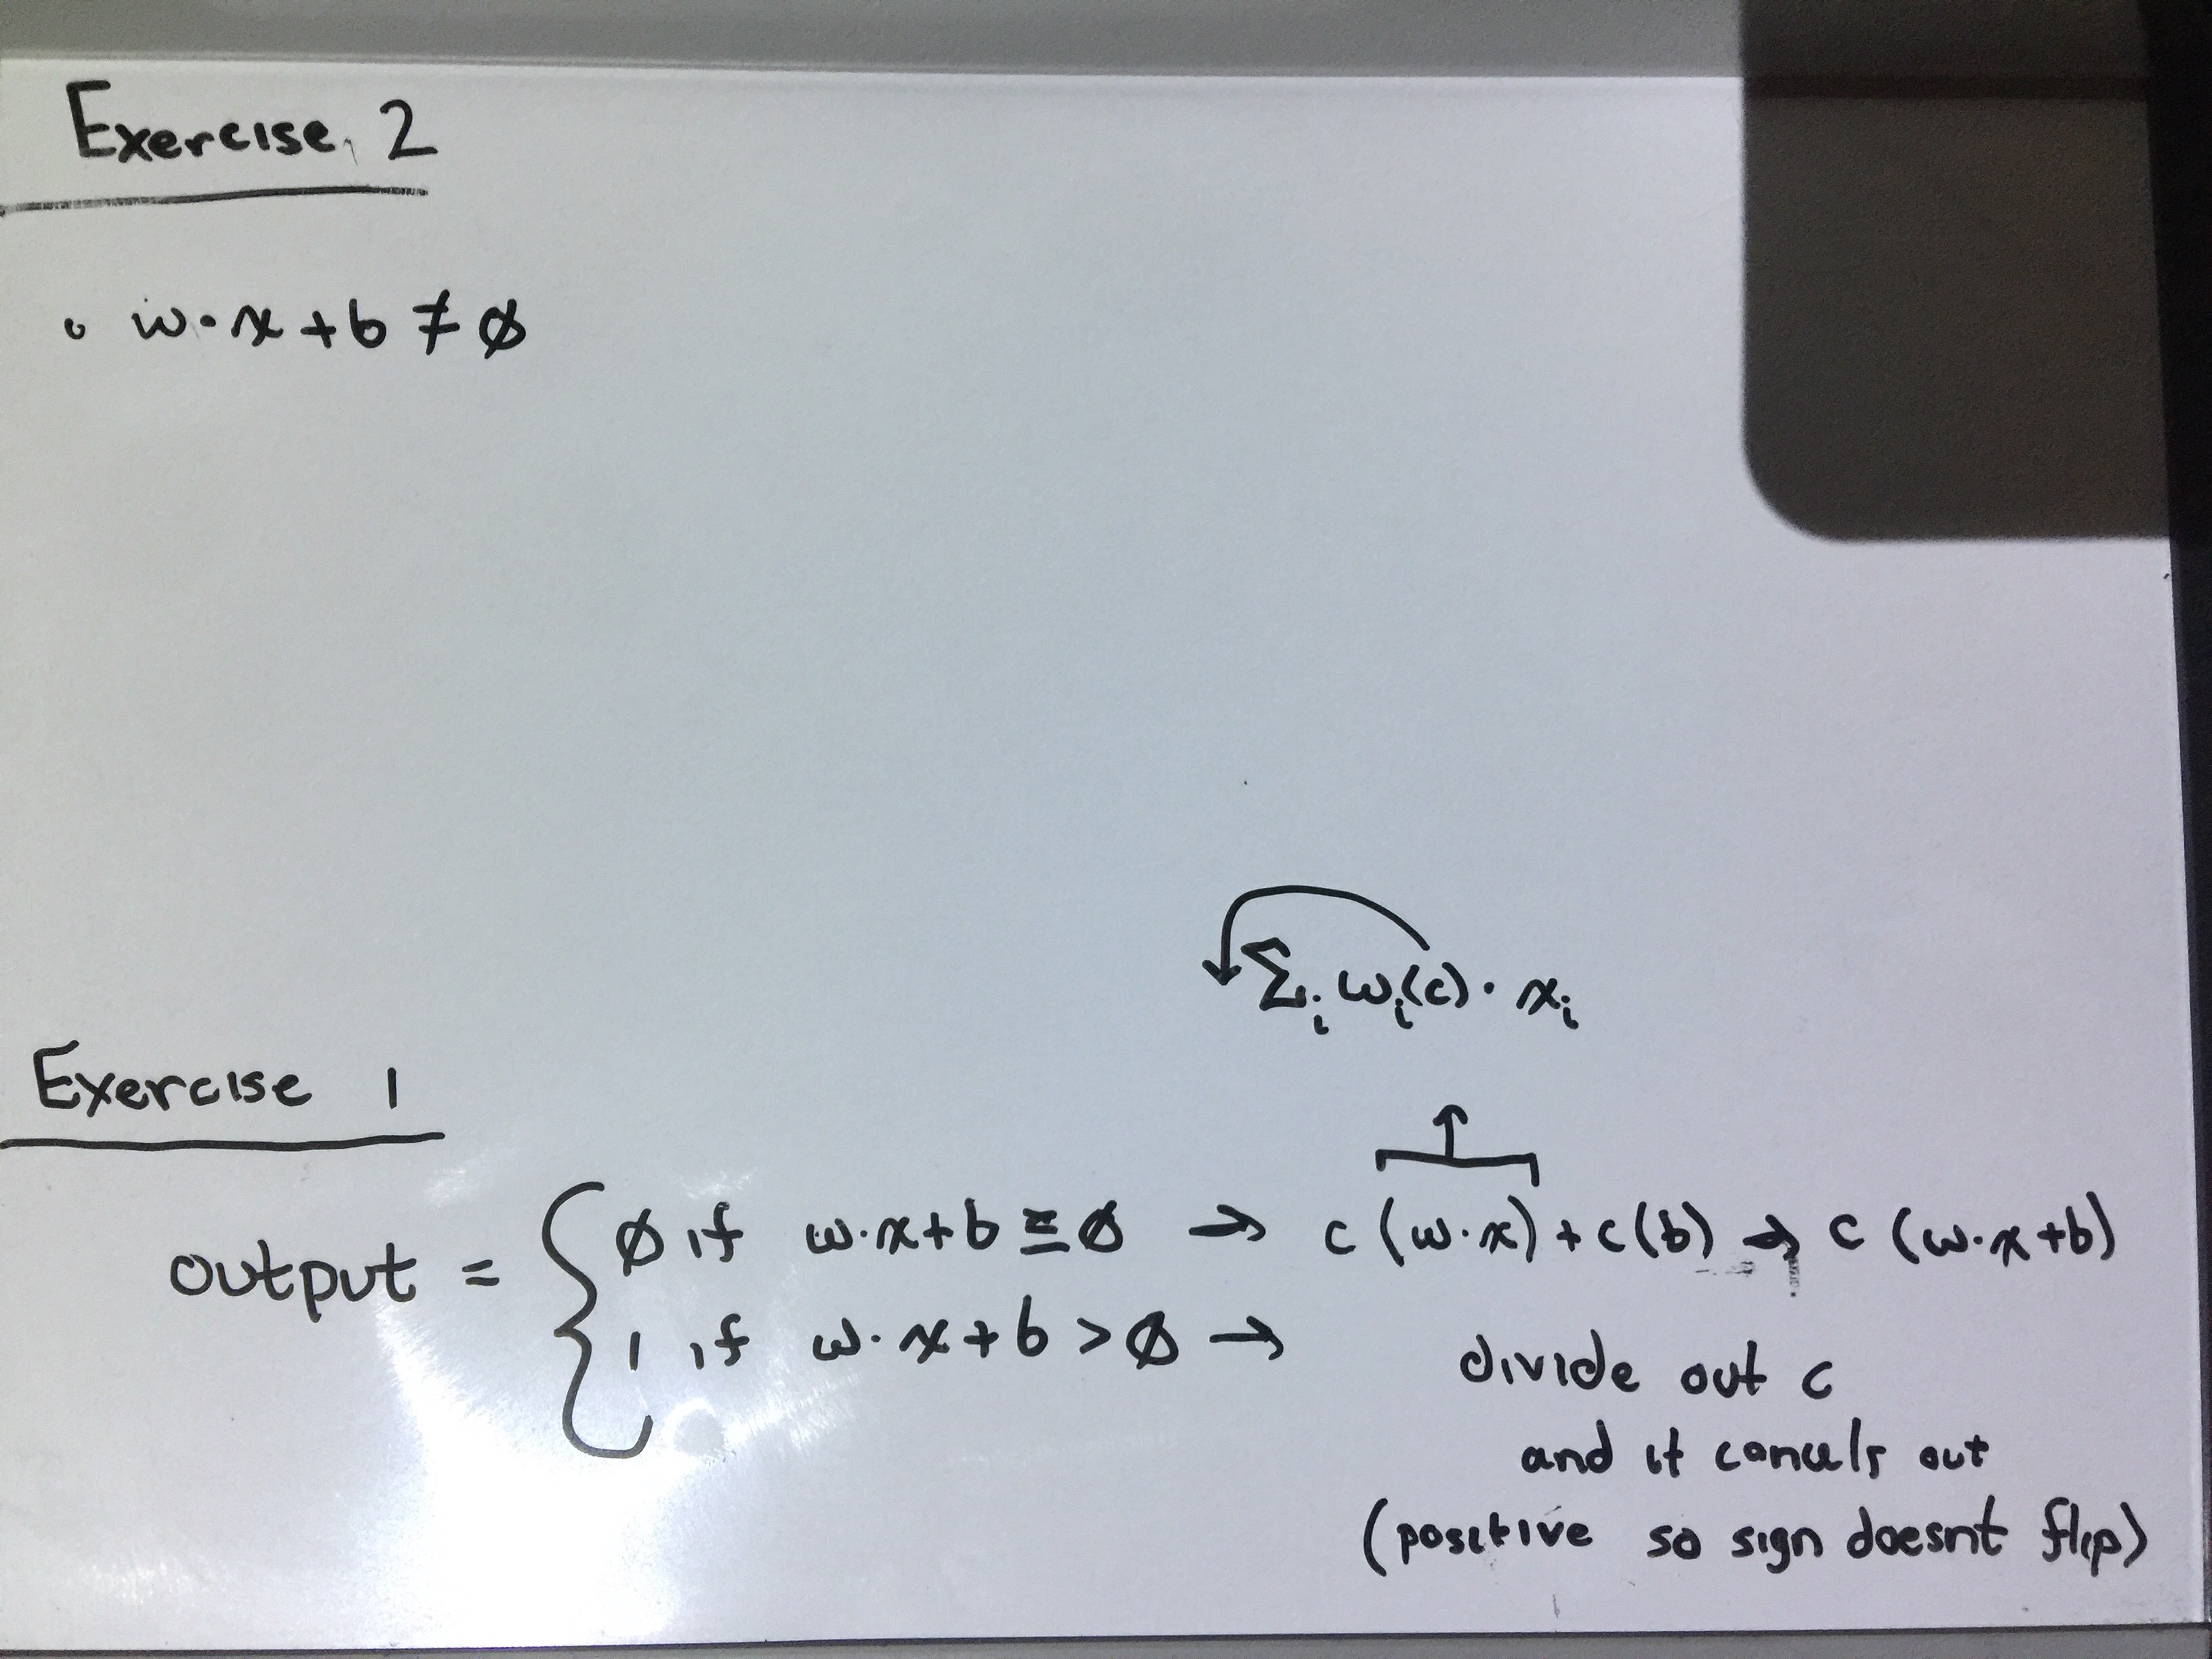 Exercise 2
∘ w·x+b ≠ ∅
Σᵢ wᵢ(c)·xᵢ
Exercise 1
output = { ∅ if w·x+b ≤ ∅ → c(w·x)+c(b) → c(w·x+b)
1 if w·x+b > ∅ →
divide out c
and it cancels out
(positive so sign doesnt flip)